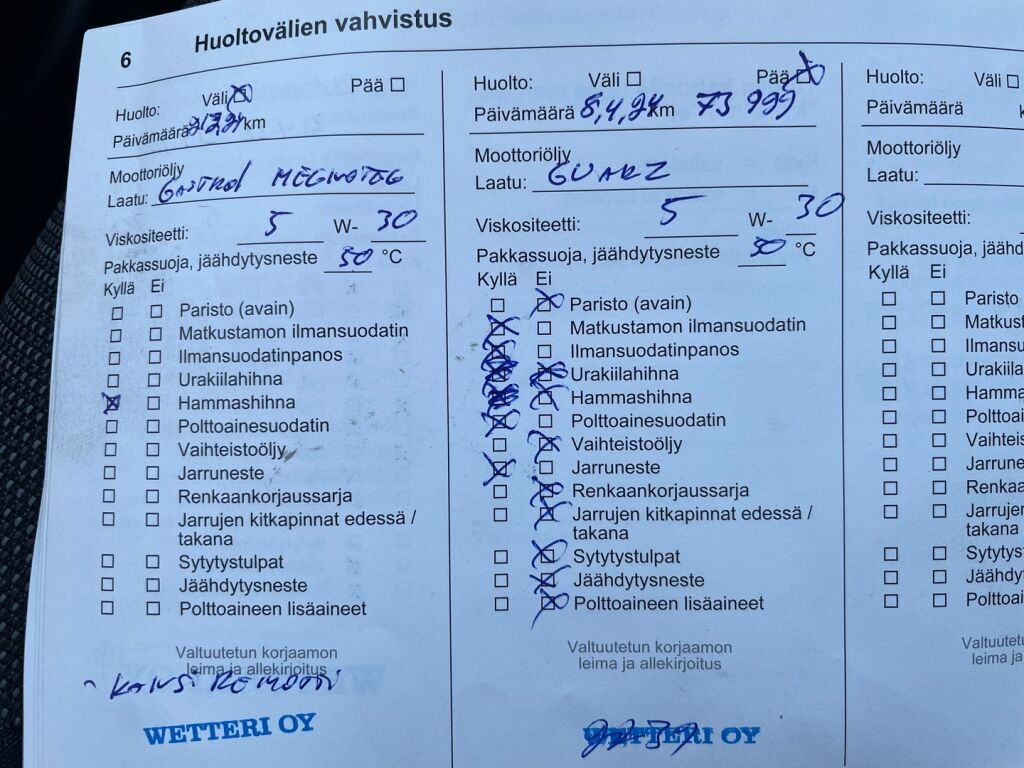 6 Huoltovälien vahvistus
Huolto: Väli Pää
Päivämäärä km
Moottoriöljy
Laatu:
Viskositeetti: 5 W- 30
Pakkassuoja, jäähdytysneste 50 °C
Kyllä Ei
Paristo (avain)
Matkustamon ilmansuodatin
Ilmansuodatinpanos
Urakiilahihna
Hammashihna
Polttoainesuodatin
Vaihteistoöljy
Jarruneste
Renkaankorjaussarja
Jarrujen kitkapinnat edessä /
takana
Sytytystulpat
Jäähdytysneste
Polttoaineen lisäaineet
Valtuutetun korjaamon
leima ja allekirjoitus
KANSI REMOTTI
WETTERI OY
Huolto: Väli Pää
Päivämäärä 8,4,24 km 73 999
Moottoriöljy
Laatu: GUARZ
Viskositeetti: 5 W- 30
Pakkassuoja, jäähdytysneste 50 °C
Kyllä Ei
Paristo (avain)
Matkustamon ilmansuodatin
Ilmansuodatinpanos
Urakiilahihna
Hammashihna
Polttoainesuodatin
Vaihteistoöljy
Jarruneste
Renkaankorjaussarja
Jarrujen kitkapinnat edessä /
takana
Sytytystulpat
Jäähdytysneste
Polttoaineen lisäaineet
Valtuutetun korjaamon
leima ja allekirjoitus
WETTERI OY
Huolto: Väli
Päivämäärä
Moottoriöljy
Laatu:
Viskositeetti:
Pakkassuoja, jäähd
Kyllä Ei
Paristo
Matkust
Ilmansu
Urakiila
Hamma
Polttoai
Vaihteis
Jarrune
Renkaa
Jarrujen
takana
Sytytys
Jäähdy
Polttoai
Valtuutetu
leima ja